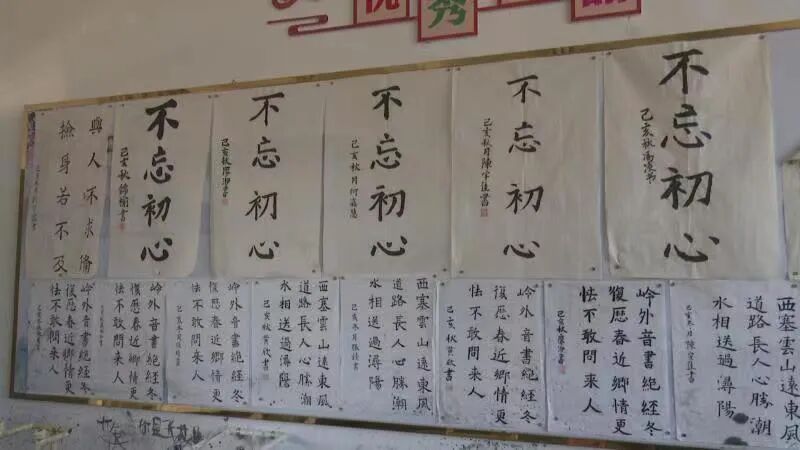 秀
與人不求備
撿身若不及
不忘初心
己亥秋錦榆書
不忘初心
己亥秋廖湘書
不忘初心
己亥秋月何嘉慧
不忘初心
己亥秋月陳宇佳書
不忘初心
己亥秋馮凌書
岭外音書絕經冬
復歷春近鄉情更
怯不敢問来人
岭外音書絕經冬
復歷春近鄉情更
怯不敢問来人
岭外音書絕經冬
復歷春近鄉情更
怯不敢問来人
西塞雲山遠東風
道路長人心勝潮
水相送過潯陽
己亥秋黃欣書
西塞雲山遠東風
道路長人心勝潮
水相送過潯陽
岭外音書絕經冬
復歷春近鄉情更
怯不敢問来人
己亥秋黃欣書
岭外音書絕經冬
復歷春近鄉情更
怯不敢問来人
己亥秋廖湘書
西塞雲山遠東風
道路長人心勝潮
水相送過潯陽
己亥冬月陳宇佳書